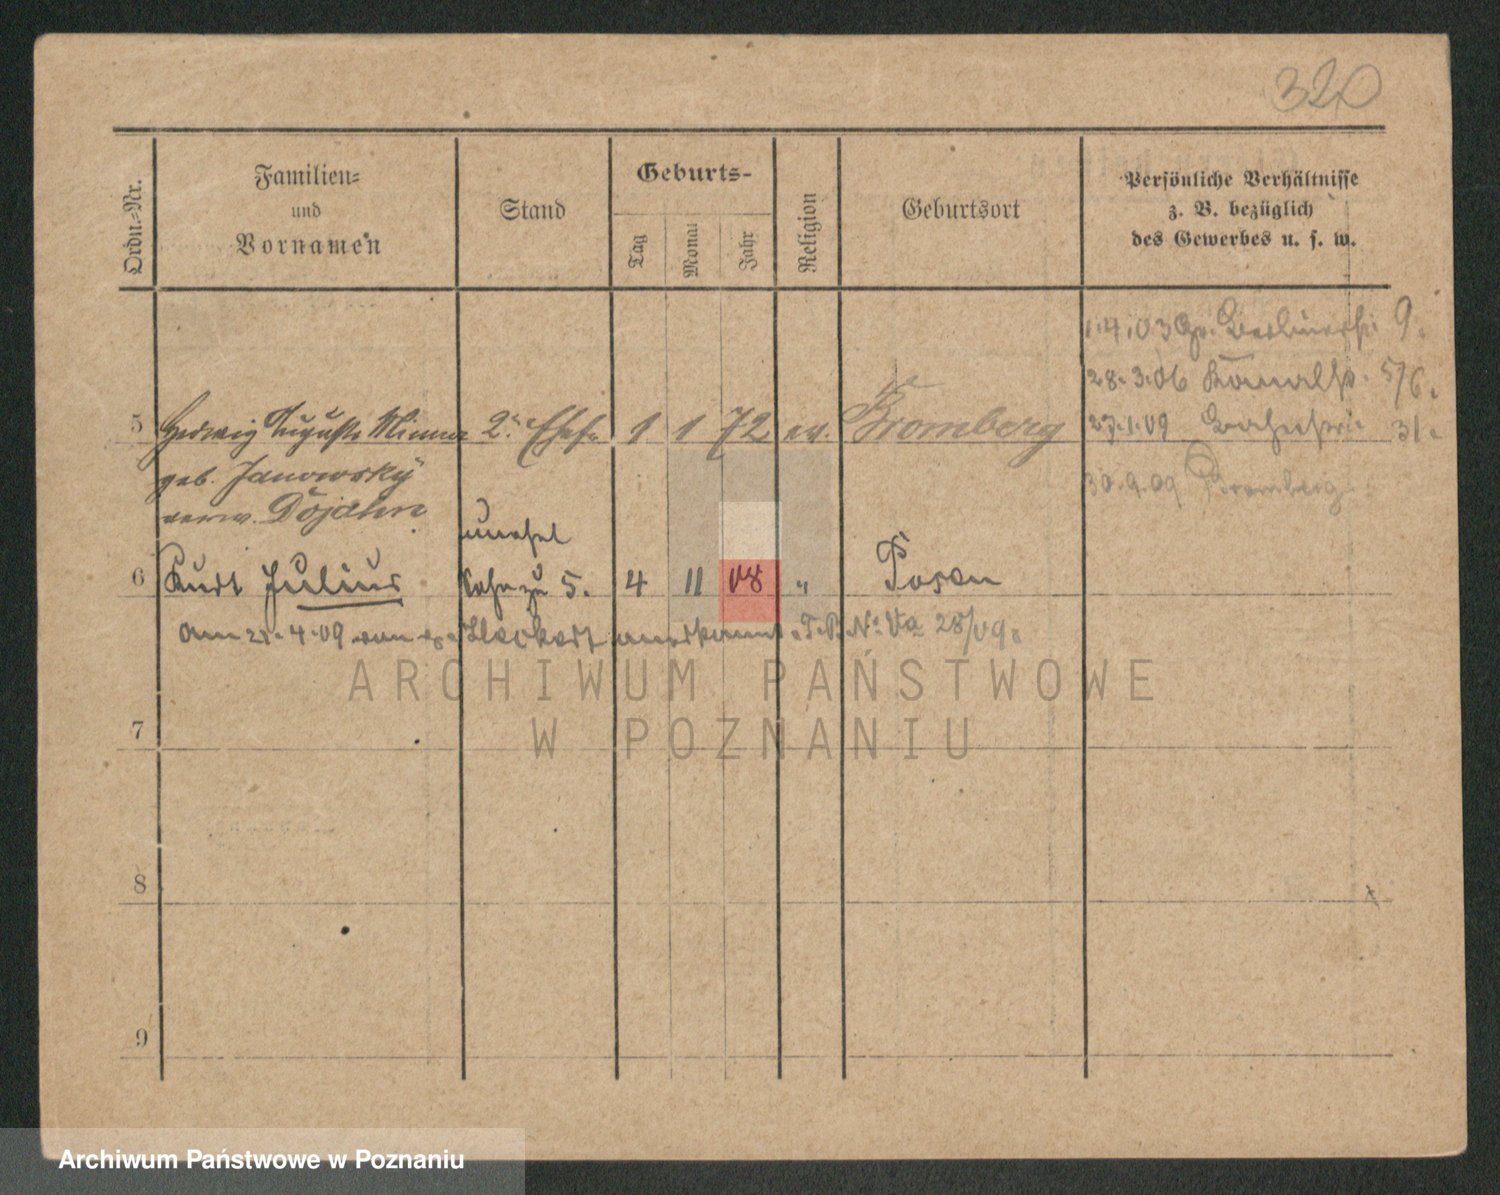 320
Ordn.-Nr.
Familien-
und
Vornamen
Stand
Geburts-
Tag
Monat
Jahr
Religion
Geburtsort
Persönliche Verhältnisse
z. B. bezüglich
des Gewerbes u. s. w.
1.4.03 Gr. Berlinerstr. 9.
28.3.06 Kanalstr. 5/6.
5 Hedwig Auguste Minna 2. Ehefr. 1 1 72 ev. Bromberg
27.1.09 31.
geb. Janowsky
30.9.09 Bromberg
verw.
unehel
6 Kurt Julius Sohn zu 5. 4 11 08 " Posen
am 4.09 von anerkannt T.B. No Va 28/09.
ARCHIWUM PAŃSTWOWE
W POZNANIU
7
8
9
Archiwum Państwowe w Poznaniu